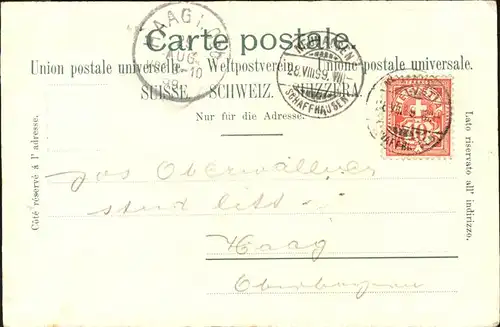 Carte postale.
Union postale universelle. Weltpostverein. Unione postale universale.
SUISSE. SCHWEIZ. SVIZZERA.
Nur für die Adresse.
Côté réservé à l'adresse.
Lato riservato all' indirizzo.
HAAG
AUG.
NEUHAUSEN
28.VIII.99.VIII-
SCHAFFHAUSEN
HELVETIA
10
Jos Oberwallner
stud litt
Haag
Oberbayern